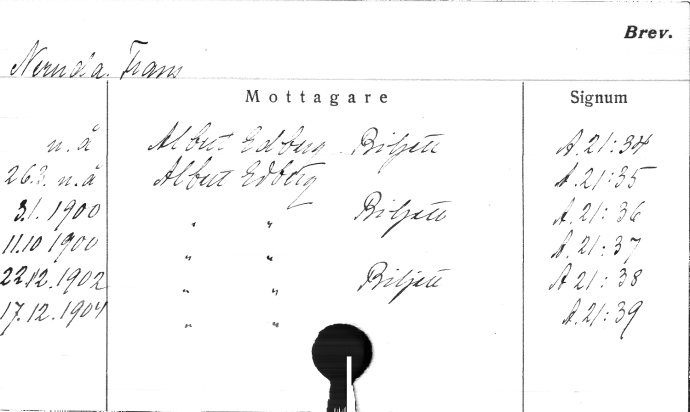 Brev.
Neruda. Frans
Mottagare Signum
n. å Albert Edberg Biljett A. 21:34
26.3. n. å Albert Edberg A. 21:35
3.1. 1900 " " Biljett A. 21:36
11.10 1900 " " A. 21:37
22.12. 1902 " " Biljett A 21:38
17.12. 1904 " " A. 21:39